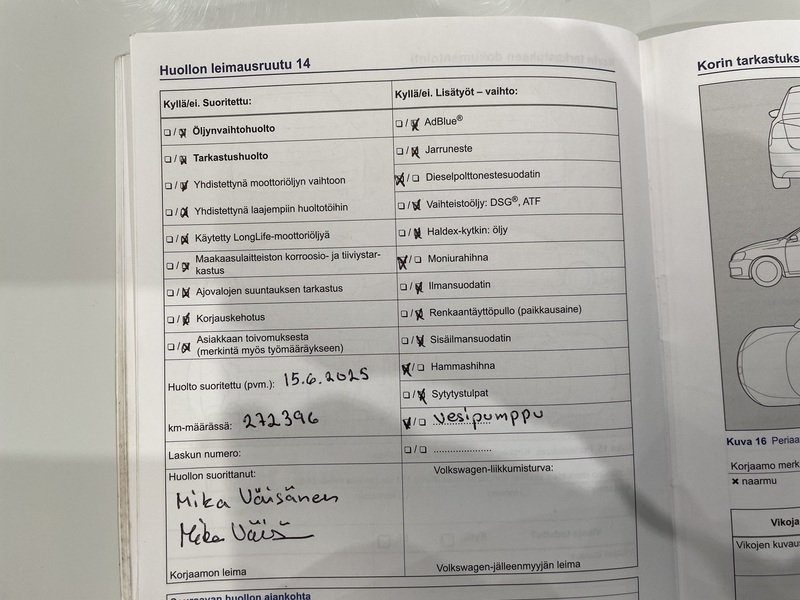 Huollon leimausruutu 14
Kyllä/ei. Suoritettu:
☐/☒ Öljynvaihtohuolto
☐/☒ Tarkastushuolto
☐/☒ Yhdistettynä moottoriöljyn vaihtoon
☐/☒ Yhdistettynä laajempiin huoltotöihin
☐/☒ Käytetty LongLife-moottoriöljyä
☐/☒ Maakaasulaitteiston korroosio- ja tiiviystar-
kastus
☐/☒ Ajovalojen suuntauksen tarkastus
☐/☒ Korjauskehotus
☐/☒ Asiakkaan toivomuksesta
(merkintä myös työmääräykseen)
Huolto suoritettu (pvm.): 15.6.2025
km-määrässä: 272396
Laskun numero:
Huollon suorittanut:
Mika Väisänen
Mika Väis
Korjaamon leima
Kyllä/ei. Lisätyöt – vaihto:
☐/☒ AdBlue®
☐/☒ Jarruneste
☒/☐ Dieselpolttonestesuodatin
☐/☒ Vaihteistoöljy: DSG®, ATF
☐/☒ Haldex-kytkin: öljy
☒/☐ Moniurahihna
☐/☒ Ilmansuodatin
☐/☒ Renkaantäyttöpullo (paikkausaine)
☐/☒ Sisäilmansuodatin
☒/☐ Hammashihna
☐/☒ Sytytystulpat
☒/☐ vesipumppu
☐/☐ ....................
Volkswagen-liikkumisturva:
Volkswagen-jälleenmyyjän leima
Seuraavan huollon ajankohta
Korin tarkastuks
Kuva 16 Periaa
Korjaamo merk
✖ naarmu
Vikoja
Vikojen kuvau